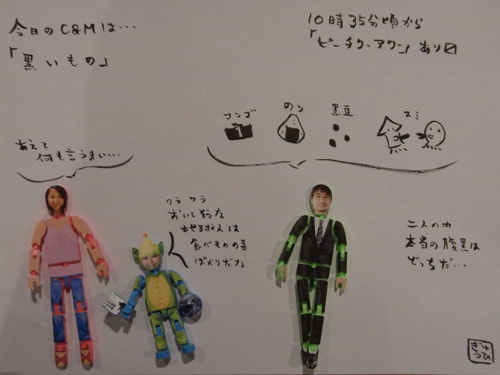 今日のC&Mは…
「黒いもの」
10時35分頃から
「ピーチク・アワー」あり
コンゴ
1
のり
黒豆
スミ
あえて
何も言うまい…
ワラ ワラ
おいしそうな
せまい人は
食べものの夢
ばかりだな
二人の内
本当の腹黒は
どっちだ…
ぎゅ
うひ